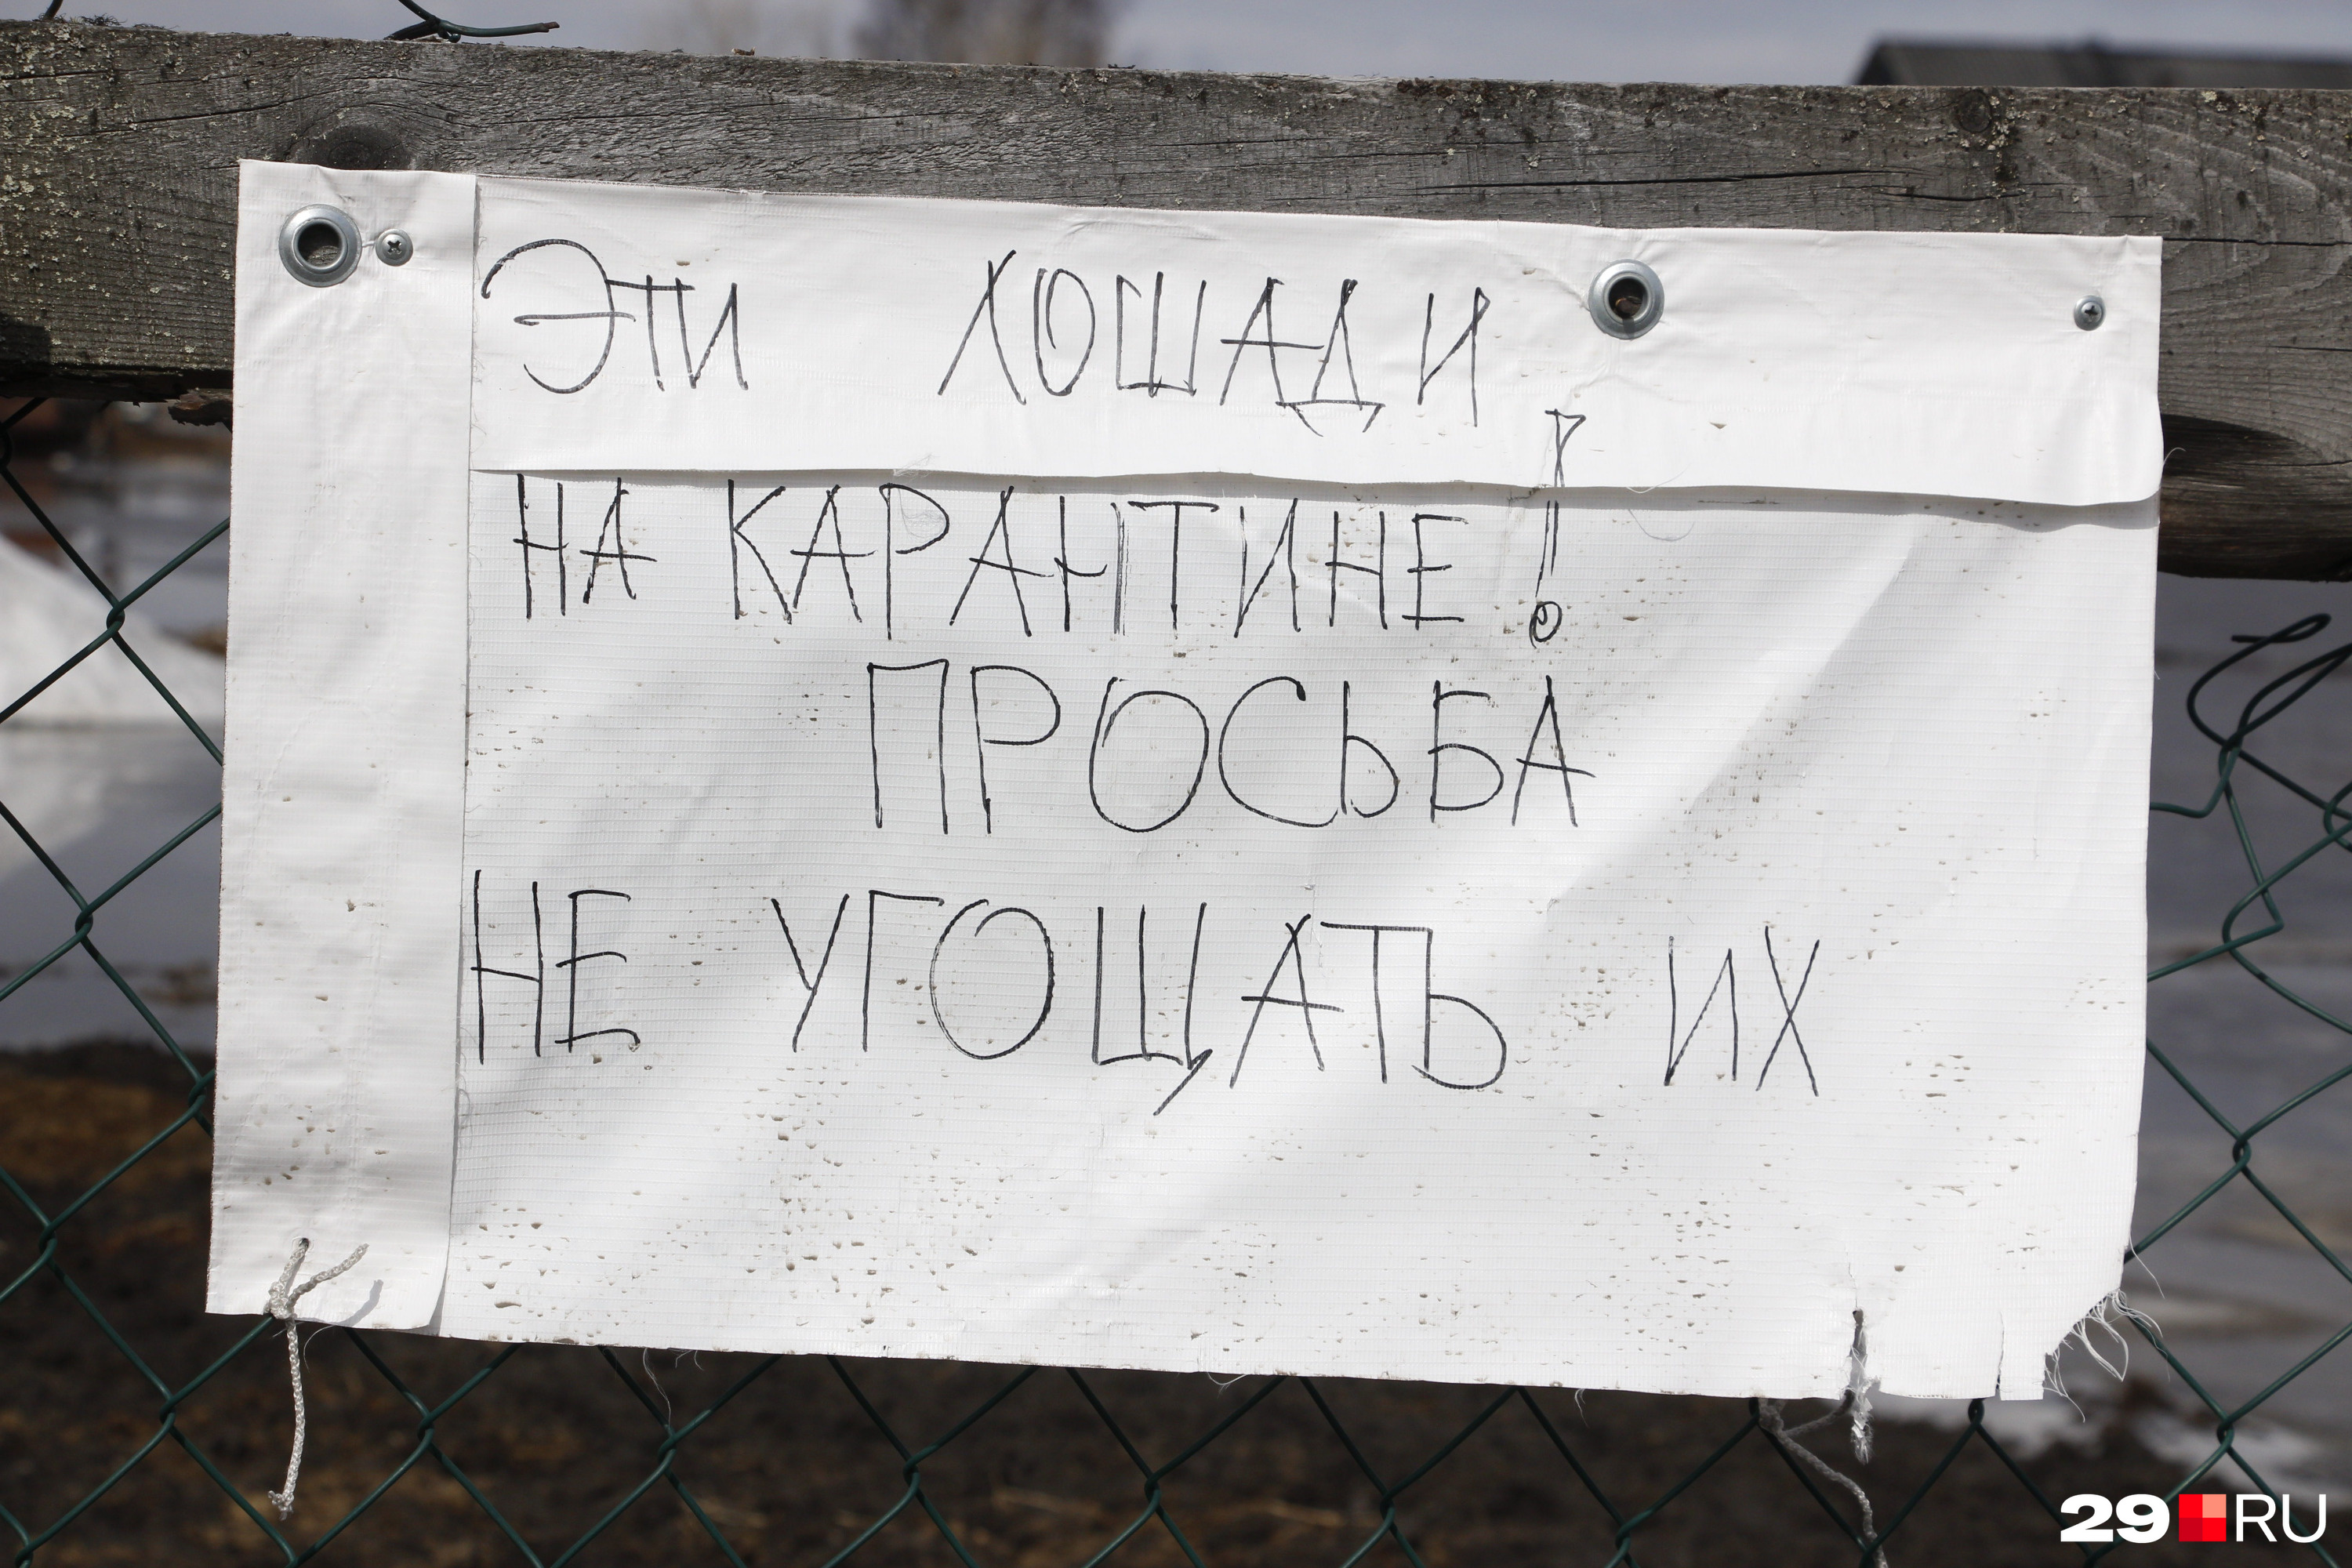 ЭТИ ЛОШАДИ
НА КАРАНТИНЕ!
ПРОСЬБА
НЕ УГОЩАТЬ ИХ
29 RU